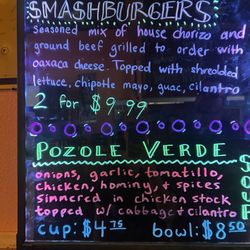 SMASHBURGERS
seasoned mix of house chorizo and
ground beef grilled to order with
oaxaca cheese. Topped with shredded
lettuce, chipotle mayo, guac, cilantro
2 for $9.99
POZOLE VERDE
onions, garlic, tomatillo,
chicken, hominy, & spices
simmered in chicken stock
topped w/ cabbage & cilantro
cup: $4.75 bowl: $8.50